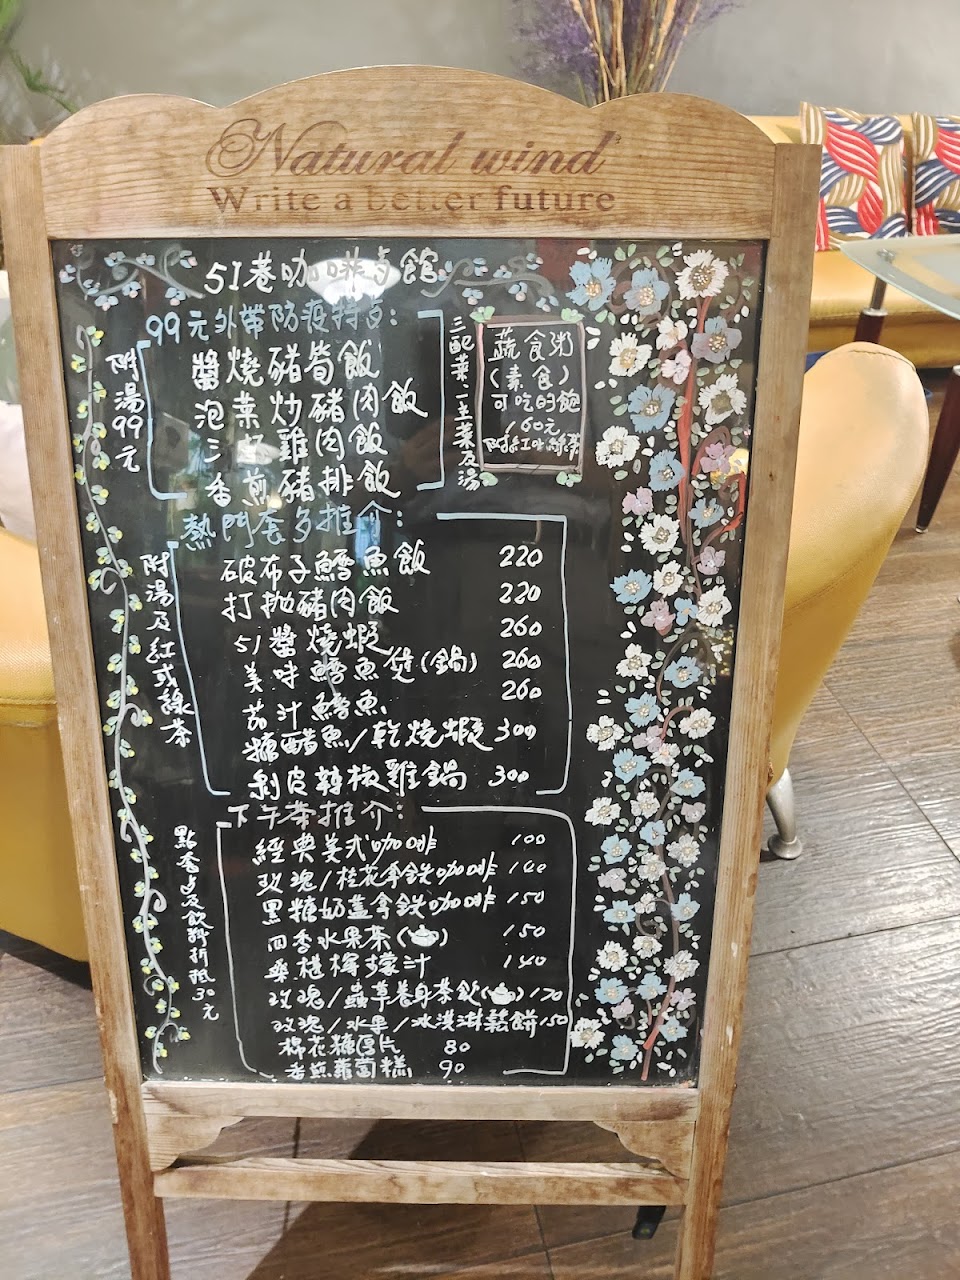 Natural wind
Write a better future
51巷咖啡点館
99元外帶防疫特点:
附湯99元
醬燒豬筍飯
泡菜炒豬肉飯
三杯雞肉飯
香煎豬排飯
三配菜.一主菜及湯
蔬食粥
(素食)
可吃的飽
160元
附紅or綠茶
熱門套歺推介:
附湯及紅或綠茶
破布子鱈魚飯 220
打拋豬肉飯 220
51醬燒蝦 260
美味鱈魚煲(鍋) 260
茄汁鱈魚 260
糖醋魚/乾燒蝦 300
剝皮辣椒雞鍋 300
下午茶推介:
點套点及飲料折抵30元
經典美式咖啡 100
玫瑰/桂花拿鉄咖啡 140
黑糖奶蓋拿鉄咖啡 150
四香水果茶( ) 150
桑椹檸檬汁 140
玫瑰/蟲草養身茶飲( ) 170
玫瑰/水果/冰淇淋鬆餅 150
棉花糖厚片 80
香煎蘿蔔糕 90